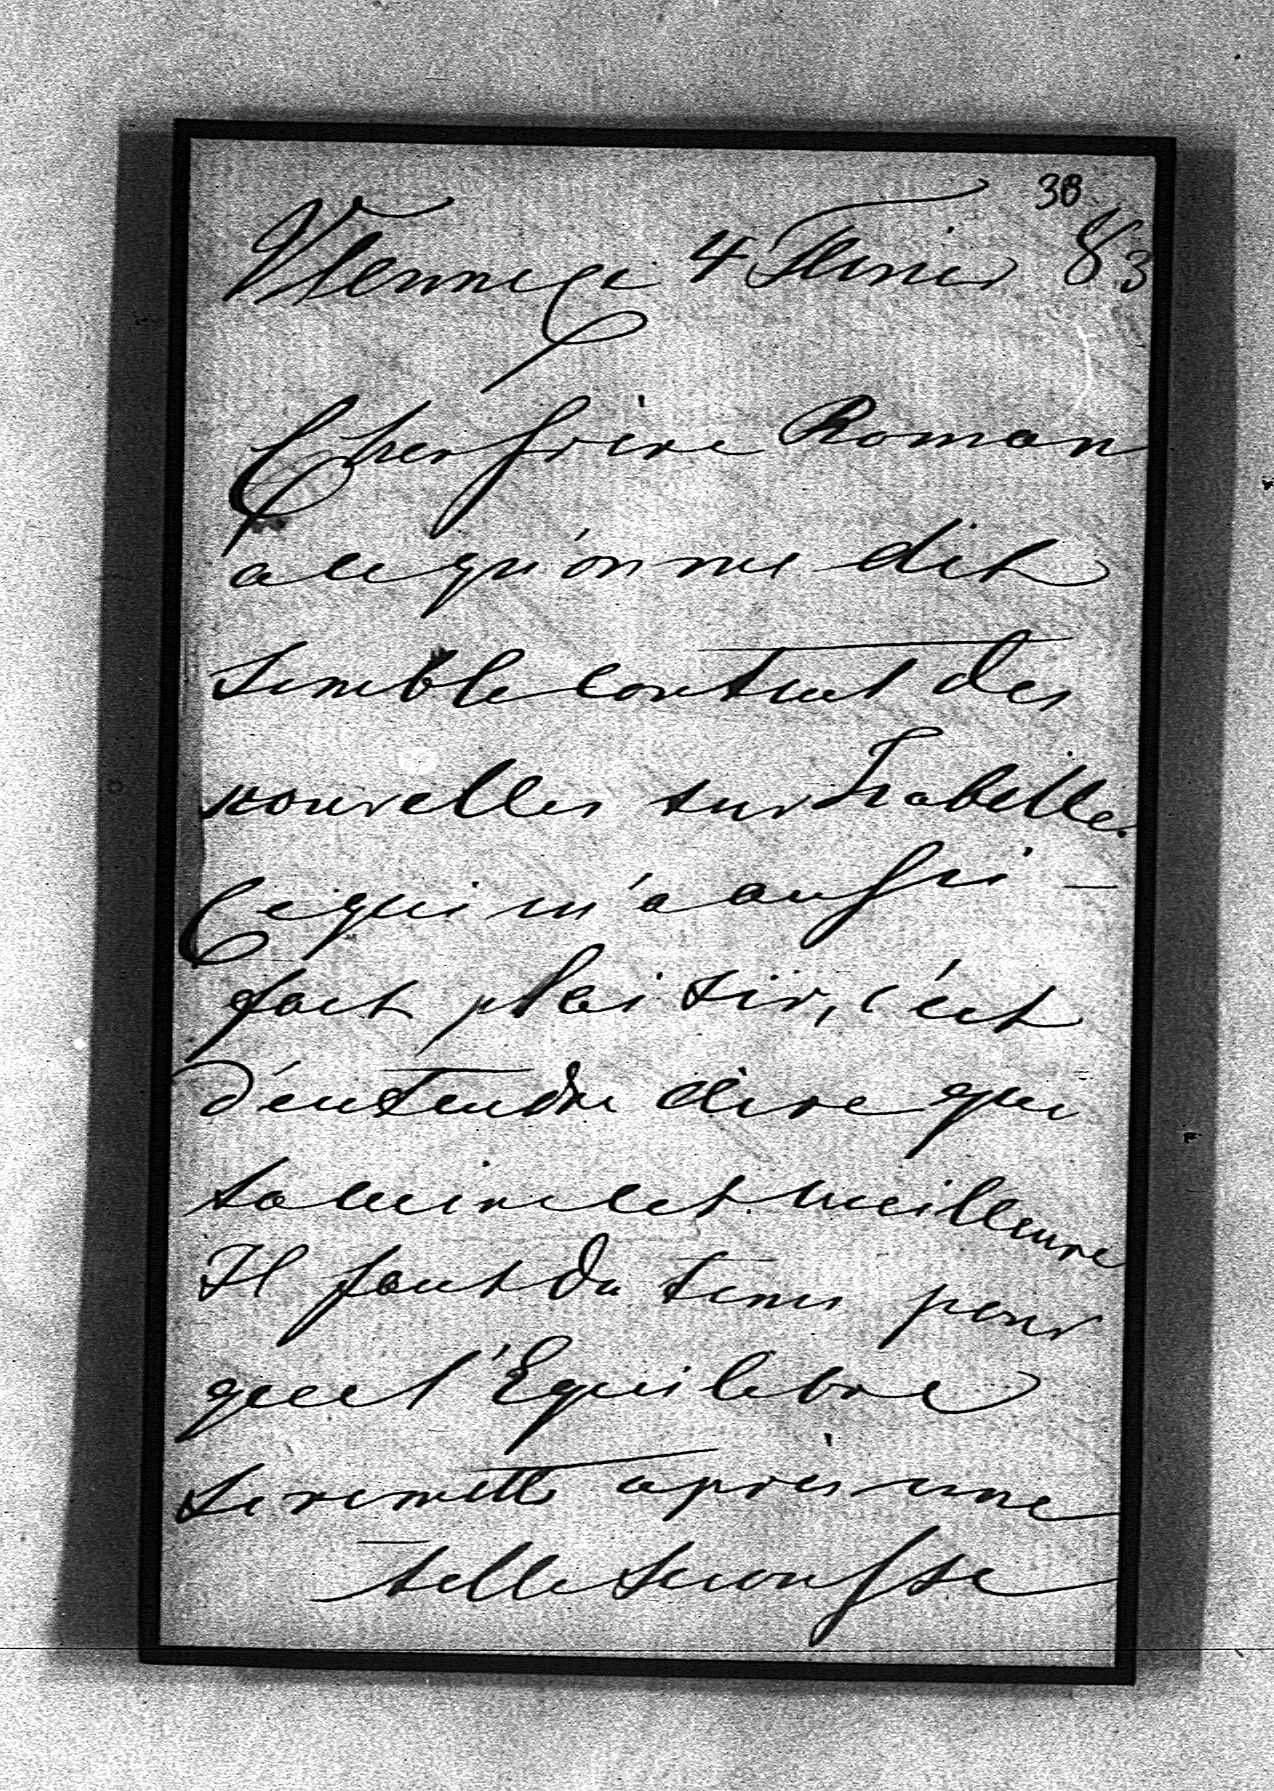 38
Vienne ce 4 Fevrier 83
Cher frère Roman
a ce qu'on me dit
semble content des
nouvelles sur Isabelle.
Ce qui m'a aussi
fait plaisir, c'est
d'entendre dire que
ta mine est meilleure
Il faut du tems pour
que l'Equilibre
se remette après une
telle secousse